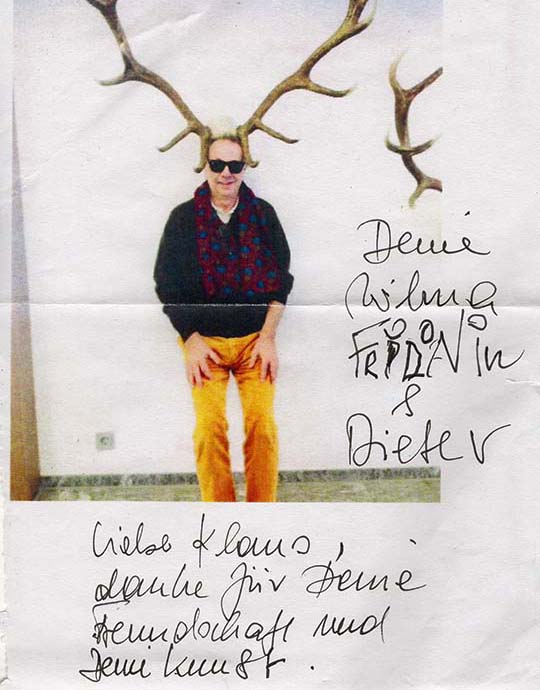 Deine
Wilma
FRIDOLIN
&
Dieter
Lieber Klaus,
danke für Deine
Freundschaft und
Deine Kunst.